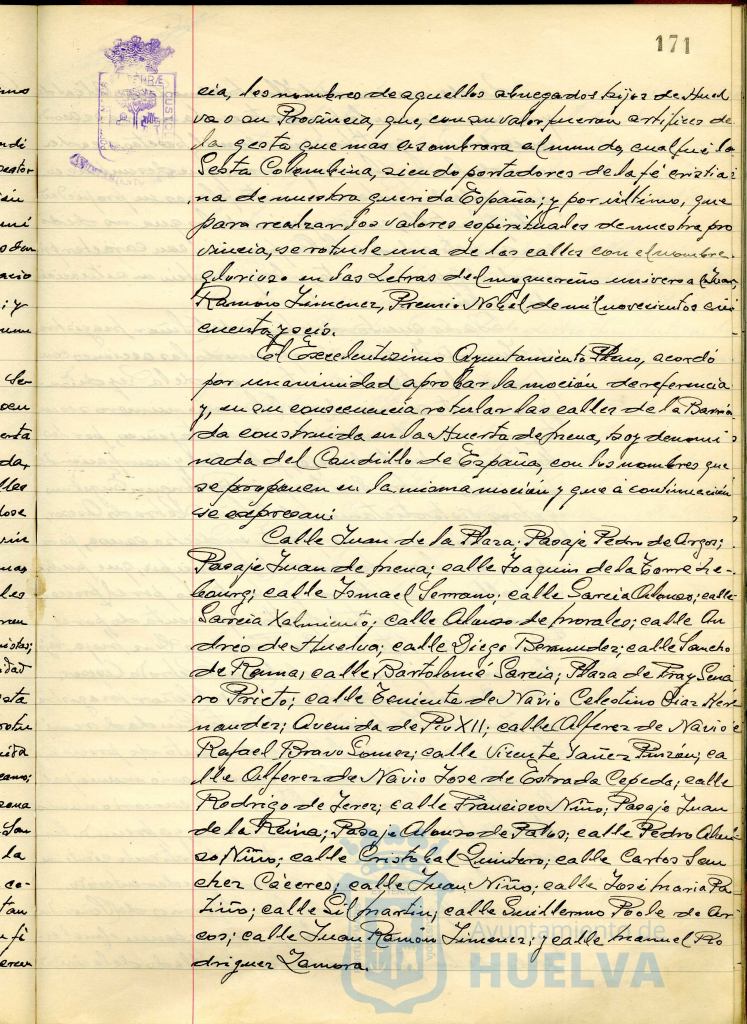 171
cia, los nombres de aquellos abnegados hijos de Huel
va o su Provincia, que, con su valor fueron artífices de
la gesta que mas asombrara al mundo, cual fué la
Gesta Colombina, siendo portadores de la fé cristia
na de nuestra querida España; y por último, que
para realzar los valores espirituales de nuestra pro
vincia, se rotule una de las calles con el nombre
glorioso en las Letras del moguereño universal Juan
Ramón Jimenez, Premio Nobel de mil novecientos cin
cuenta y seis.
El Excelentísimo Ayuntamiento Pleno, acordó
por unanimidad aprobar la moción de referencia
y, en su consecuencia rotular las calles de la Barria
da construida en la Huerta de Mena, hoy denomi
nada del Caudillo de España, con los nombres que
se proponen en la misma moción y que a continuación
se expresan:
Calle Juan de la Plaza; Pasaje Pedro de Argos;
Pasaje Juan de Mena; calle Joaquin de la Torre Le-
bourg; calle Ismael Serrano; calle Garcia Alonso; calle
Garcia Xalmiento; calle Alonso de Morales; calle An
drés de Huelva; calle Diego Bermudez; calle Sancho
de Rama; calle Bartolomé Garcia; Plaza de Fray Gena
ro Prieto; calle Teniente de Navio Celestino Diaz Her
nandez; Avenida de Pio XII; calle Alferez de Navio
Rafael Bravo Gomez; calle Vicente Yañez Pinzón; ca
lle Alferez de Navio Jose de Estrada Cepeda; calle
Rodrigo de Jerez; calle Francisco Niño; Pasaje Juan
de la Reina; Pasaje Alonso de Palos; calle Pedro Alon
so Niño; calle Cristobal Quintero; calle Carlos San
chez Cáceres; calle Juan Niño; calle José Maria Pa
tiño; calle Gil Martin; calle Guillermo Poole de Ar
cos; calle Juan Ramón Jimenez; y calle Manuel Ro
driguez Zamora.
Ayuntamiento de
HUELVA